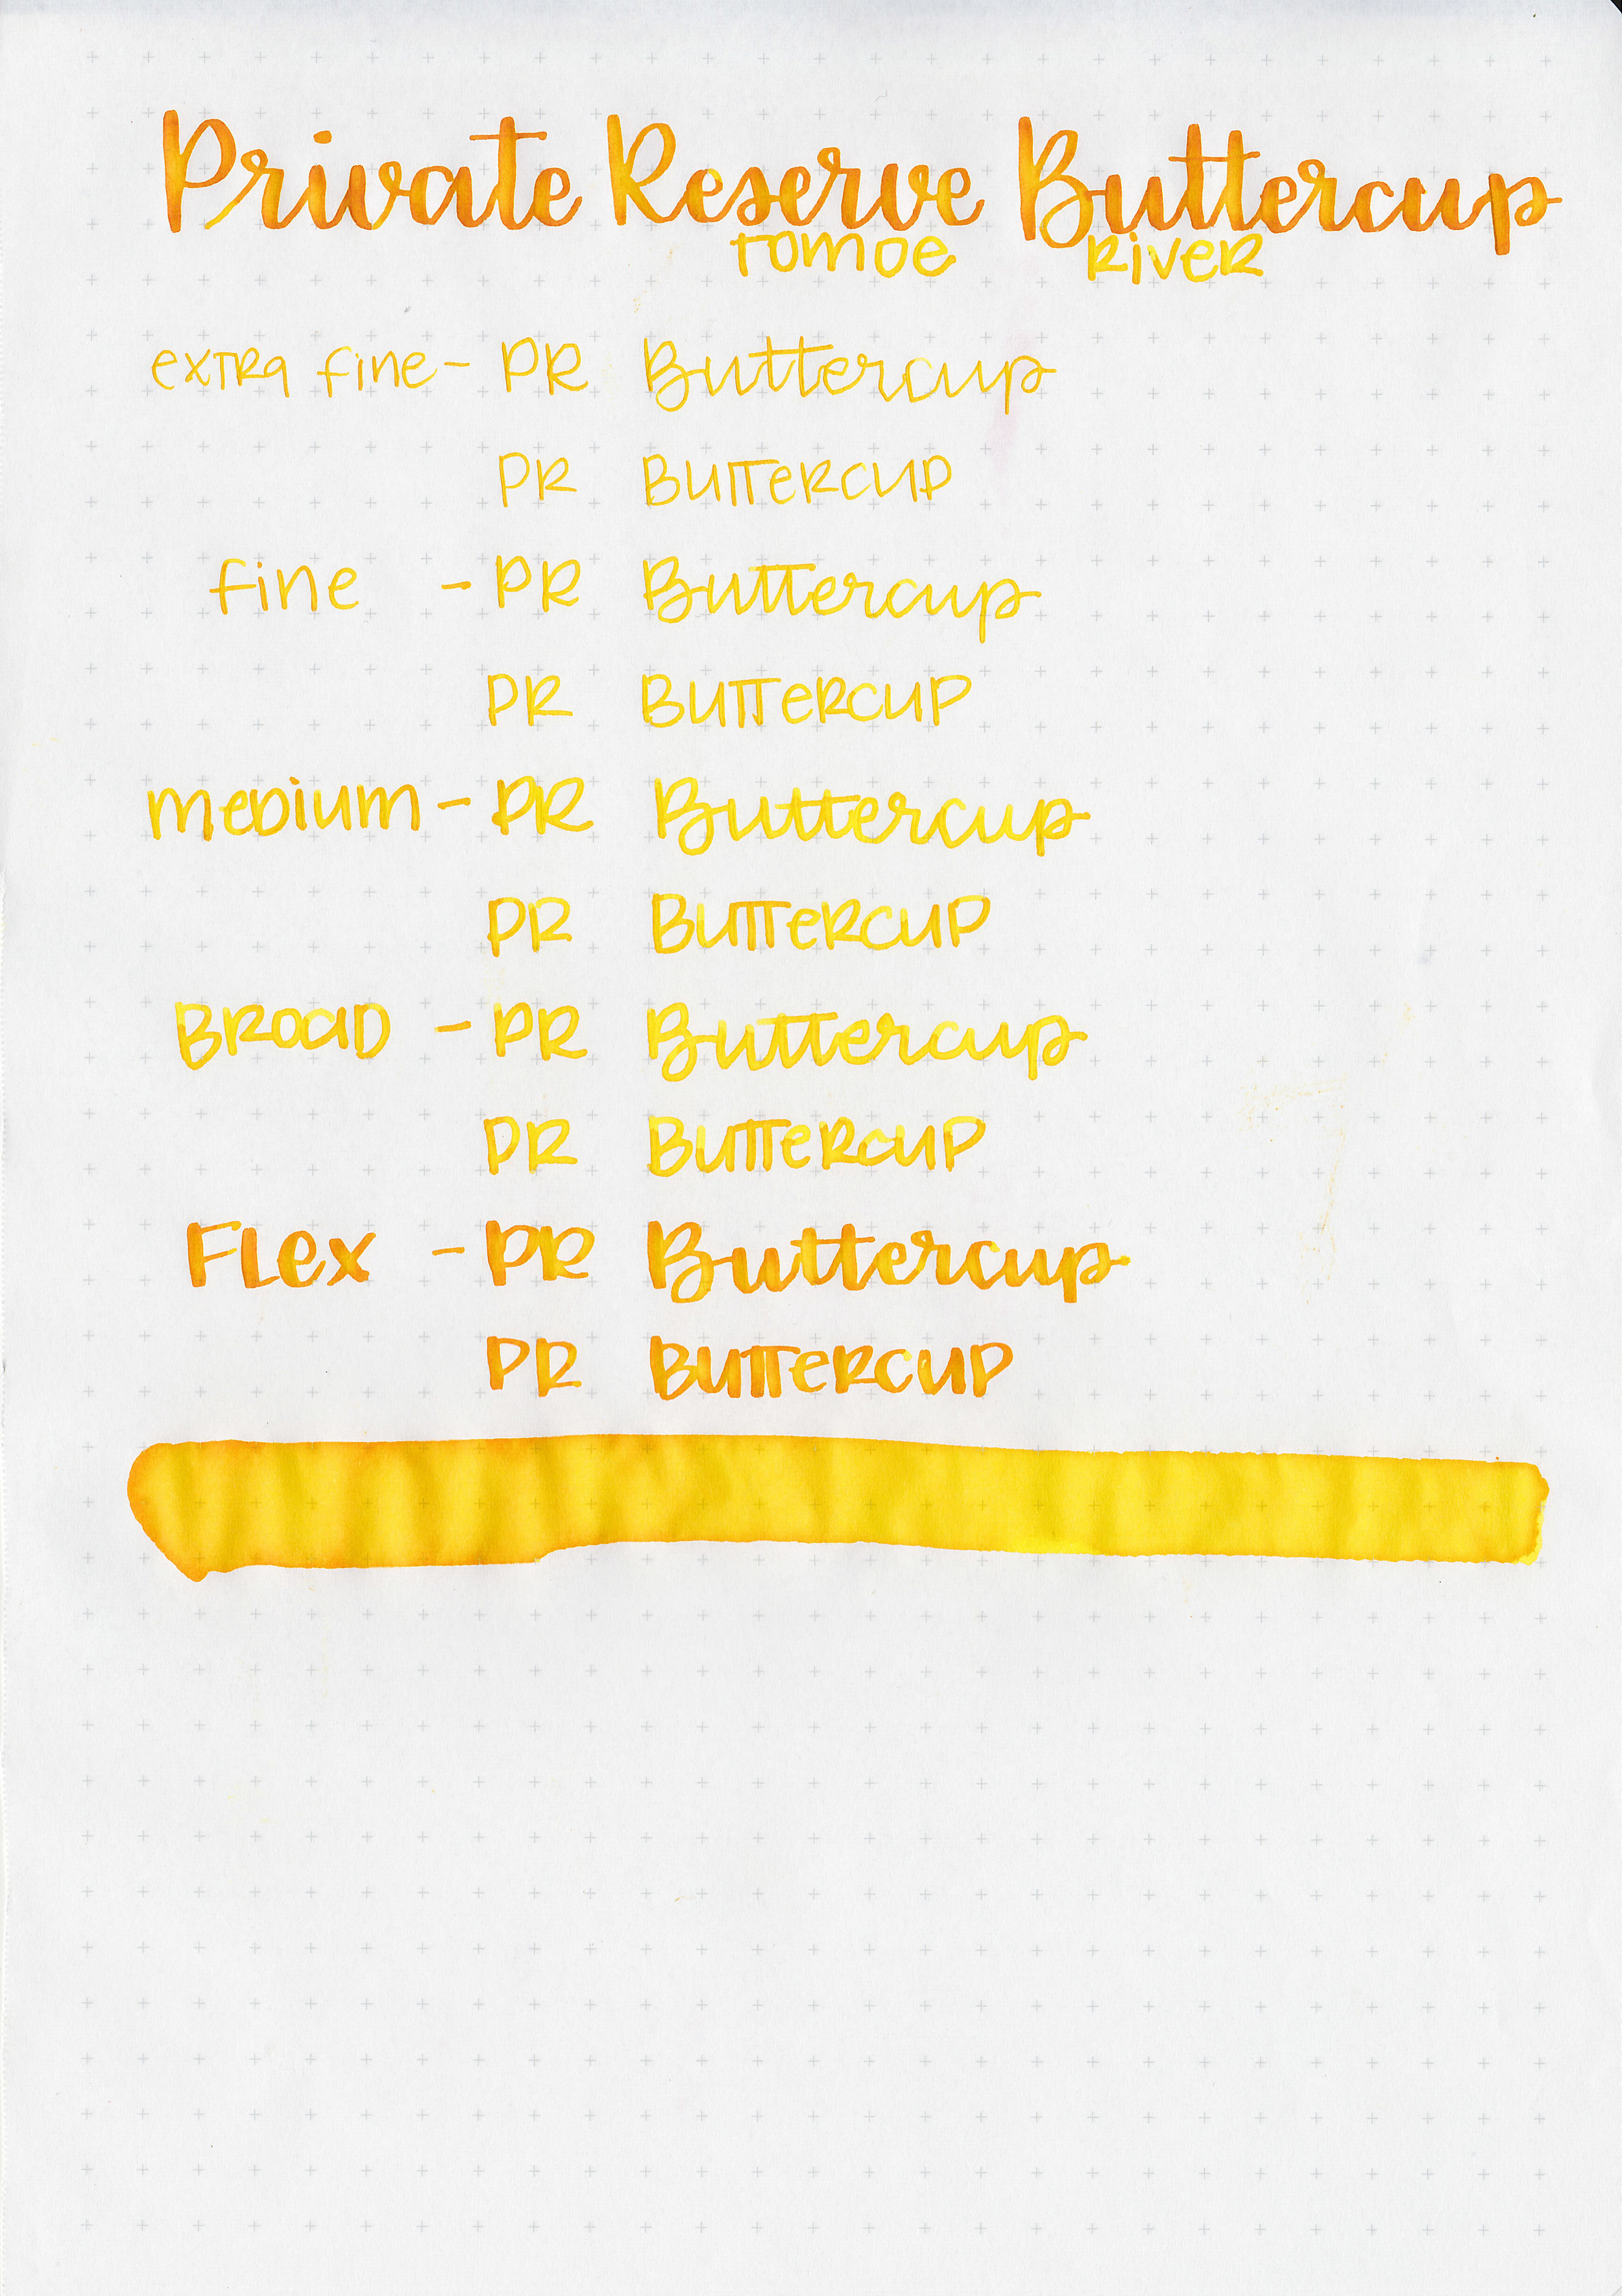 Private Reserve Buttercup
Tomoe River
extra fine - PR Buttercup
PR Buttercup
fine - PR Buttercup
PR Buttercup
medium - PR Buttercup
PR Buttercup
Broad - PR Buttercup
PR Buttercup
Flex - PR Buttercup
PR Buttercup